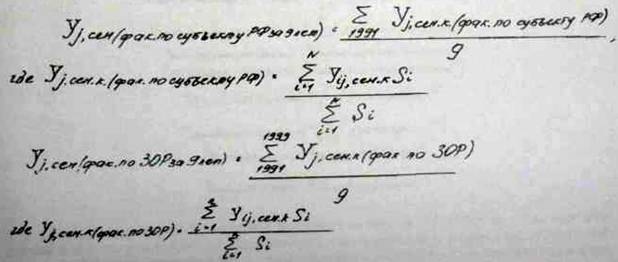 Yj,сем(фак.по субъекту РФ за 9 лет) = ∑ 1991 Yj,сем.к(фак.по субъекту РФ) / 9,
где Yj,сем.к(фак.по субъекту РФ) = ∑ N i=1 Yij,сем.к Si / ∑ N i=1 Si
Yj,сем(фак.по ЗОР за 9 лет) = ∑ 1999 1991 Yj,сем.к(фак по ЗОР) / 9
где Yj,сем.к(фак.по ЗОР) = ∑ i=1 Yij,сем.к Si / ∑ i=1 Si